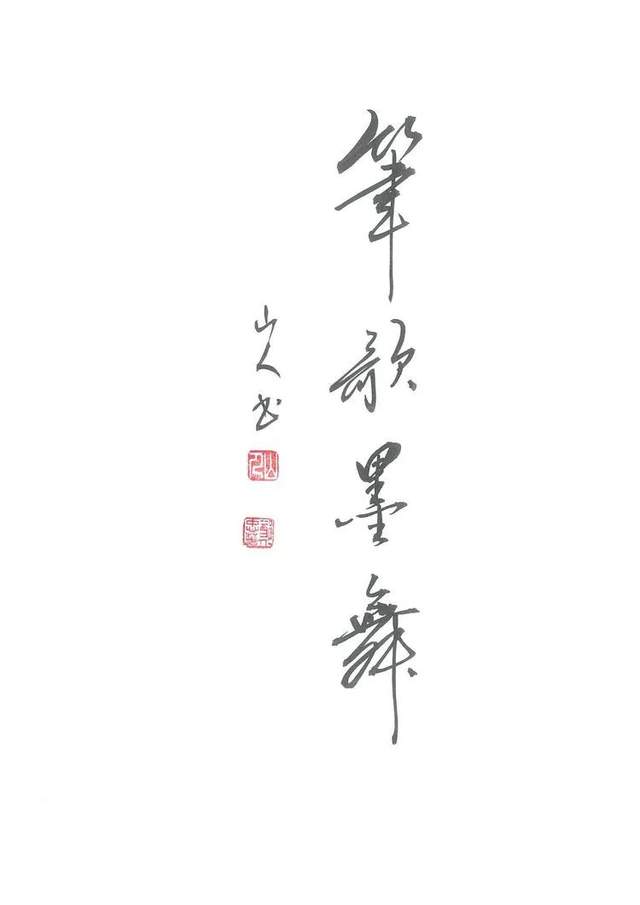 筆歌墨舞
山人书